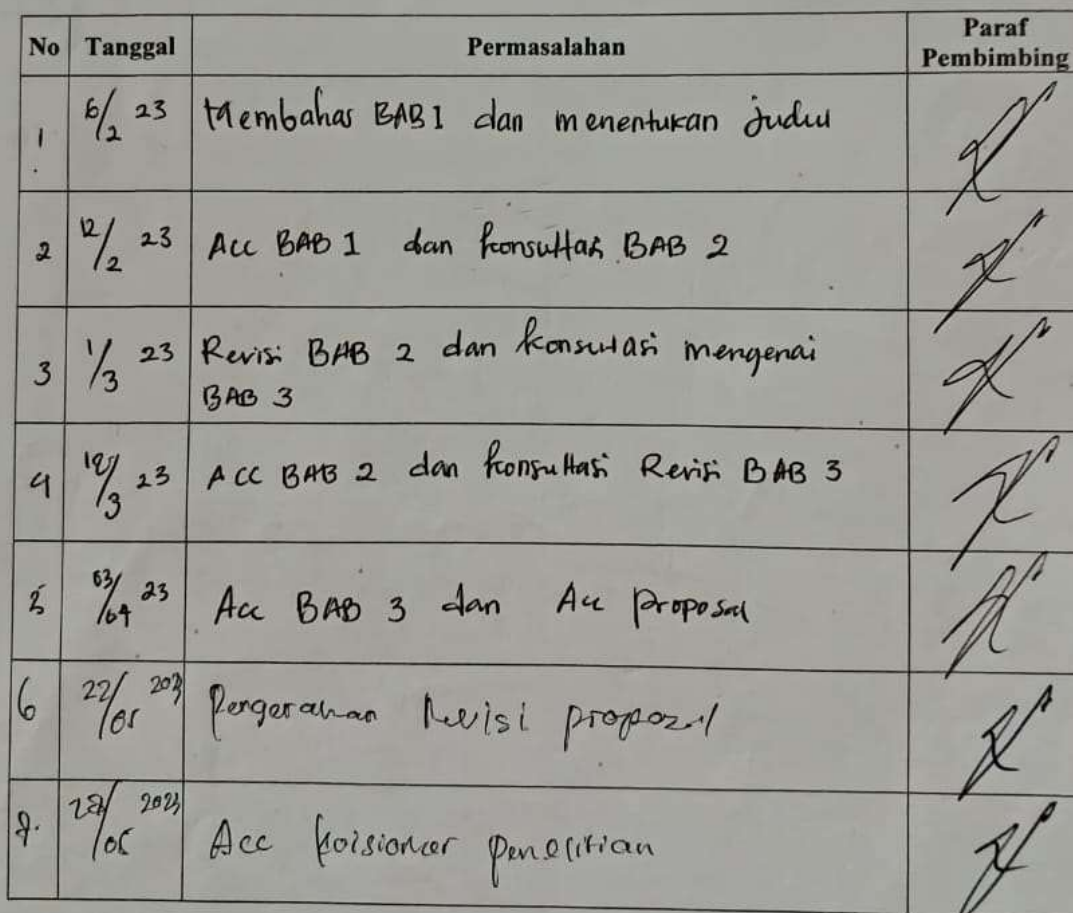 No Tanggal Permasalahan Paraf Pembimbing
1 6/2 23 Membahas BAB I dan menentukan judul
2 12/2 23 Acc BAB 1 dan konsultasi BAB 2
3 1/3 23 Revisi BAB 2 dan konsultasi mengenai
BAB 3
4 /3 23 ACC BAB 2 dan konsultasi Revisi BAB 3
5 03/04 23 Acc BAB 3 dan Acc proposal
6 22/05 2023 Pengarahan Revisi proposal
7. /05 2023 Acc koisioner penelitian